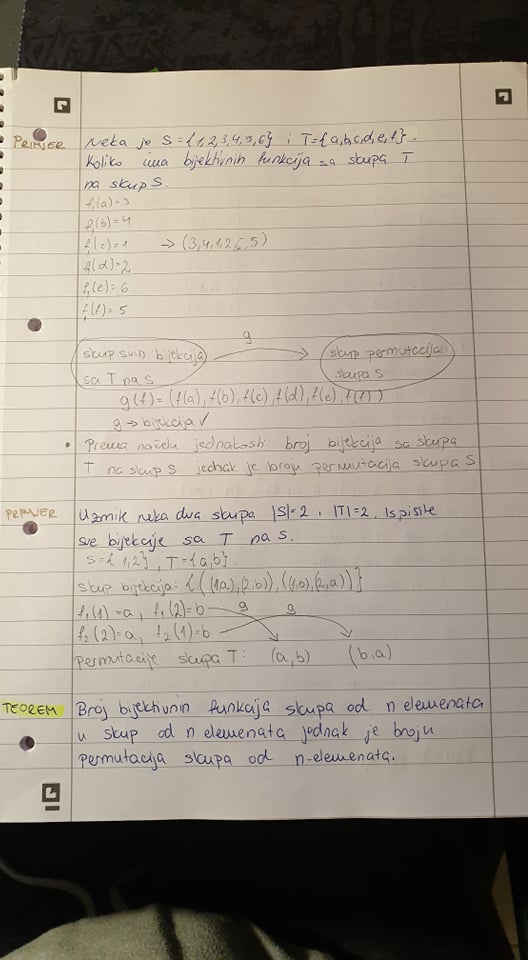 PRIMJER Neka je S={1,2,3,4,5,6} i T={a,b,c,d,e,f}.
Koliko ima bijektivnih funkcija sa skupa T
na skup S.
f₁(a)=3
f₁(b)=4
f₁(c)=1 → (3,4,1,2,6,5)
f₁(d)=2
f₁(e)=6
f₁(f)=5
g
skup svih bijekcija skup permutacija
sa T na S skupa S
g(f)=(f(a), f(b), f(c), f(d), f(e), f(f))
g → bijekcija ✓
• Prema načelu jednakosti broj bijekcija sa skupa
T na skup S jednak je broju permutacija skupa S
PRIMJER Uzmite neka dva skupa |S|=2, |T|=2. Ispišite
sve bijekcije sa T na S.
S={1,2}, T={a,b}
skup bijekcija: {((1,a),(2,b)),((1,b),(2,a))}
f₁(1)=a, f₁(2)=b g g
f₂(2)=a, f₂(1)=b
permutacije skupa T: (a,b) (b,a)
TEOREM Broj bijektivnih funkcija skupa od n elemenata
u skup od n elemenata jednak je broju
permutacija skupa od n-elemenata.